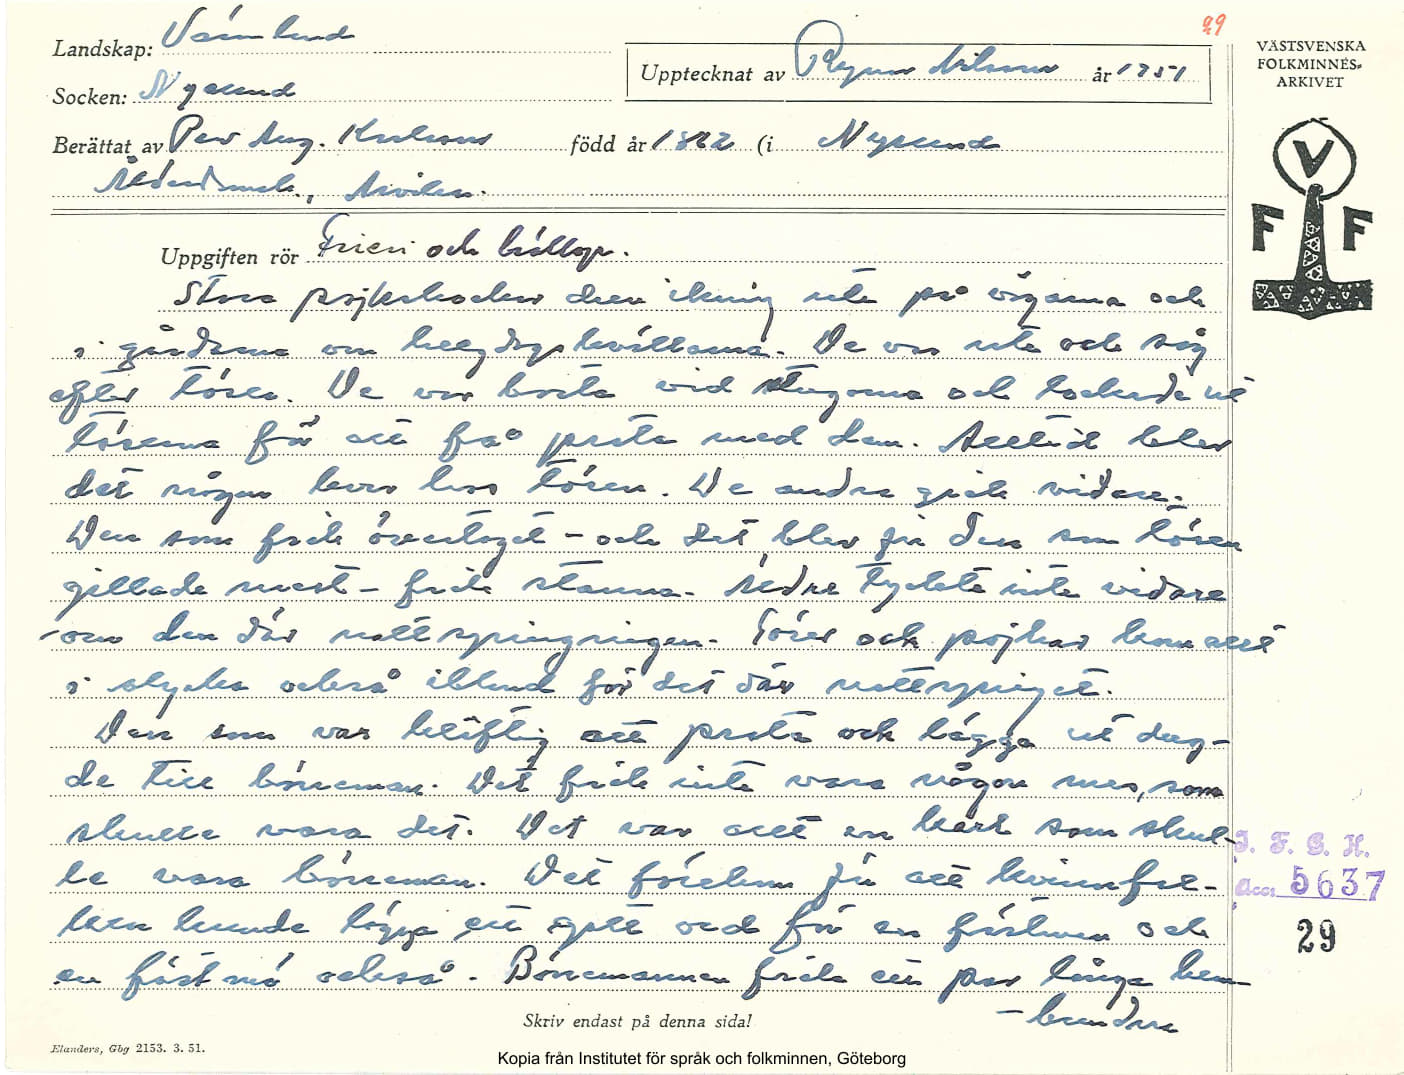 29
Landskap: Värmland
Socken: Nysund
Upptecknat av Ragnar Nilsson år 1951
VÄSTSVENSKA
FOLKMINNES-
ARKIVET
V
F F
Berättat av Per Aug. Karlsson född år 18 2 (i Nysund
Uppgiften rör Frieri och bröllop.
Stora pojkskockar drev ikring ute på vägarna och
i gårdarna om helgdagskvällarna. De var ute och såg
efter töser. De var borta vid stugorna och lockade ut
töserna för att få prata med dem. Alltid blev
det någon kvar hos tösen. De andra gick vidare.
Den som fick övertaget – och det blev ju den som tösen
gillade mest – fick stanna. Äldre tyckte inte vidare
om den där nattspringningen. Töser och pojkar kom allt
i olycka också ibland för det där nattspringet.
Den som var häftig att prata och lägga ut dug-
de till böneman. Det fick inte vara någon mes, som
skulle vara det. Det var allt en karl som skul-
le vara böneman. Det förekom ju att kvinnfol-
ken kunde lägga ett gott ord för en fästman och
en fästmö också. Bönemannen fick ett par långa hem-
I. F. G. H.
Acc. 5637
29
Skriv endast på denna sida!
Elanders, Gbg 2153. 3. 51.
Kopia från Institutet för språk och folkminnen, Göteborg